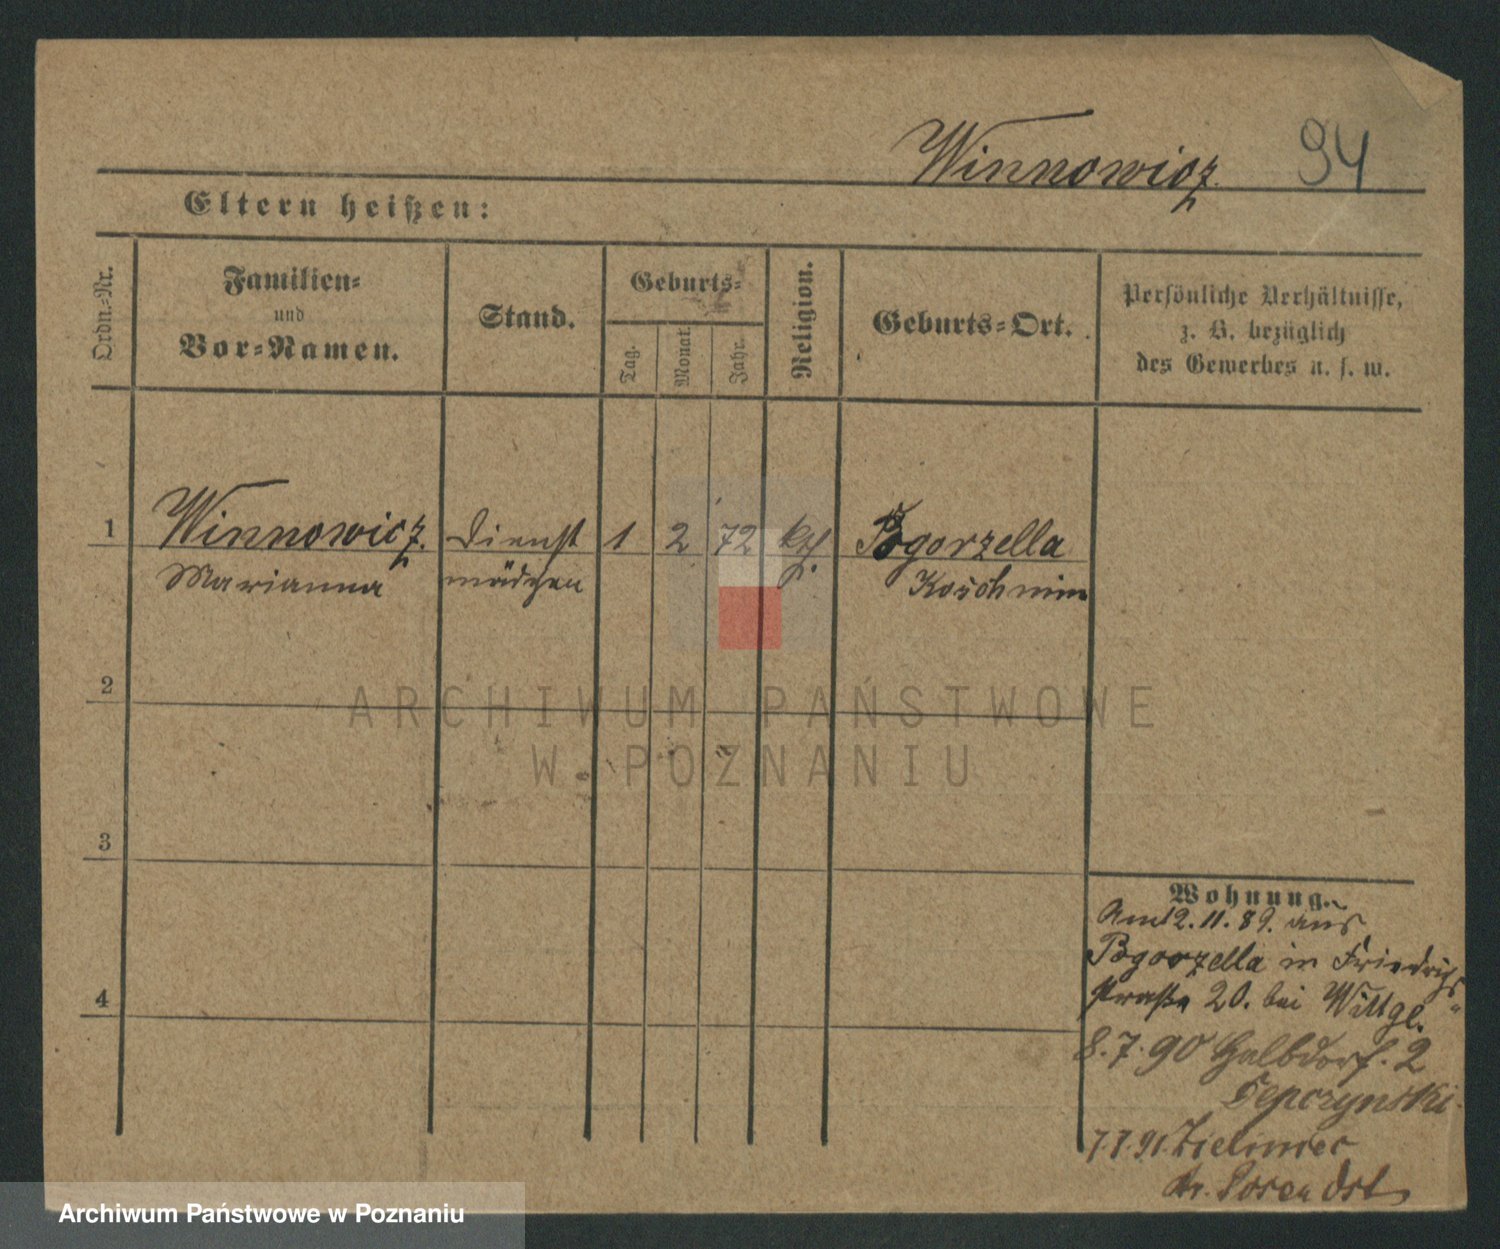 Winnowicz. 94
Eltern heißen:
Ordn.-Nr.
Familien-
und
Vor-Namen.
Stand.
Geburts-
Tag.
Monat.
Jahr.
Religion.
Geburts-Ort.
Persönliche Verhältnisse,
z. B. bezüglich
des Gewerbes u. s. w.
1 Winnowicz. Dienst 1 2 72 kth. Pogorzella
Marianna mädchen Koschmin
2
3
4
Wohnung.
Am 12. 11. 89. aus
Pogorzella in Friedrichs
straße 20. bei Wittge.
8. 7. 90 Halbdorf. 2
Cepczynski.
7. 7. 91.
Kr. Posen Ost
ARCHIWUM PAŃSTWOWE
W POZNANIU
Archiwum Państwowe w Poznaniu